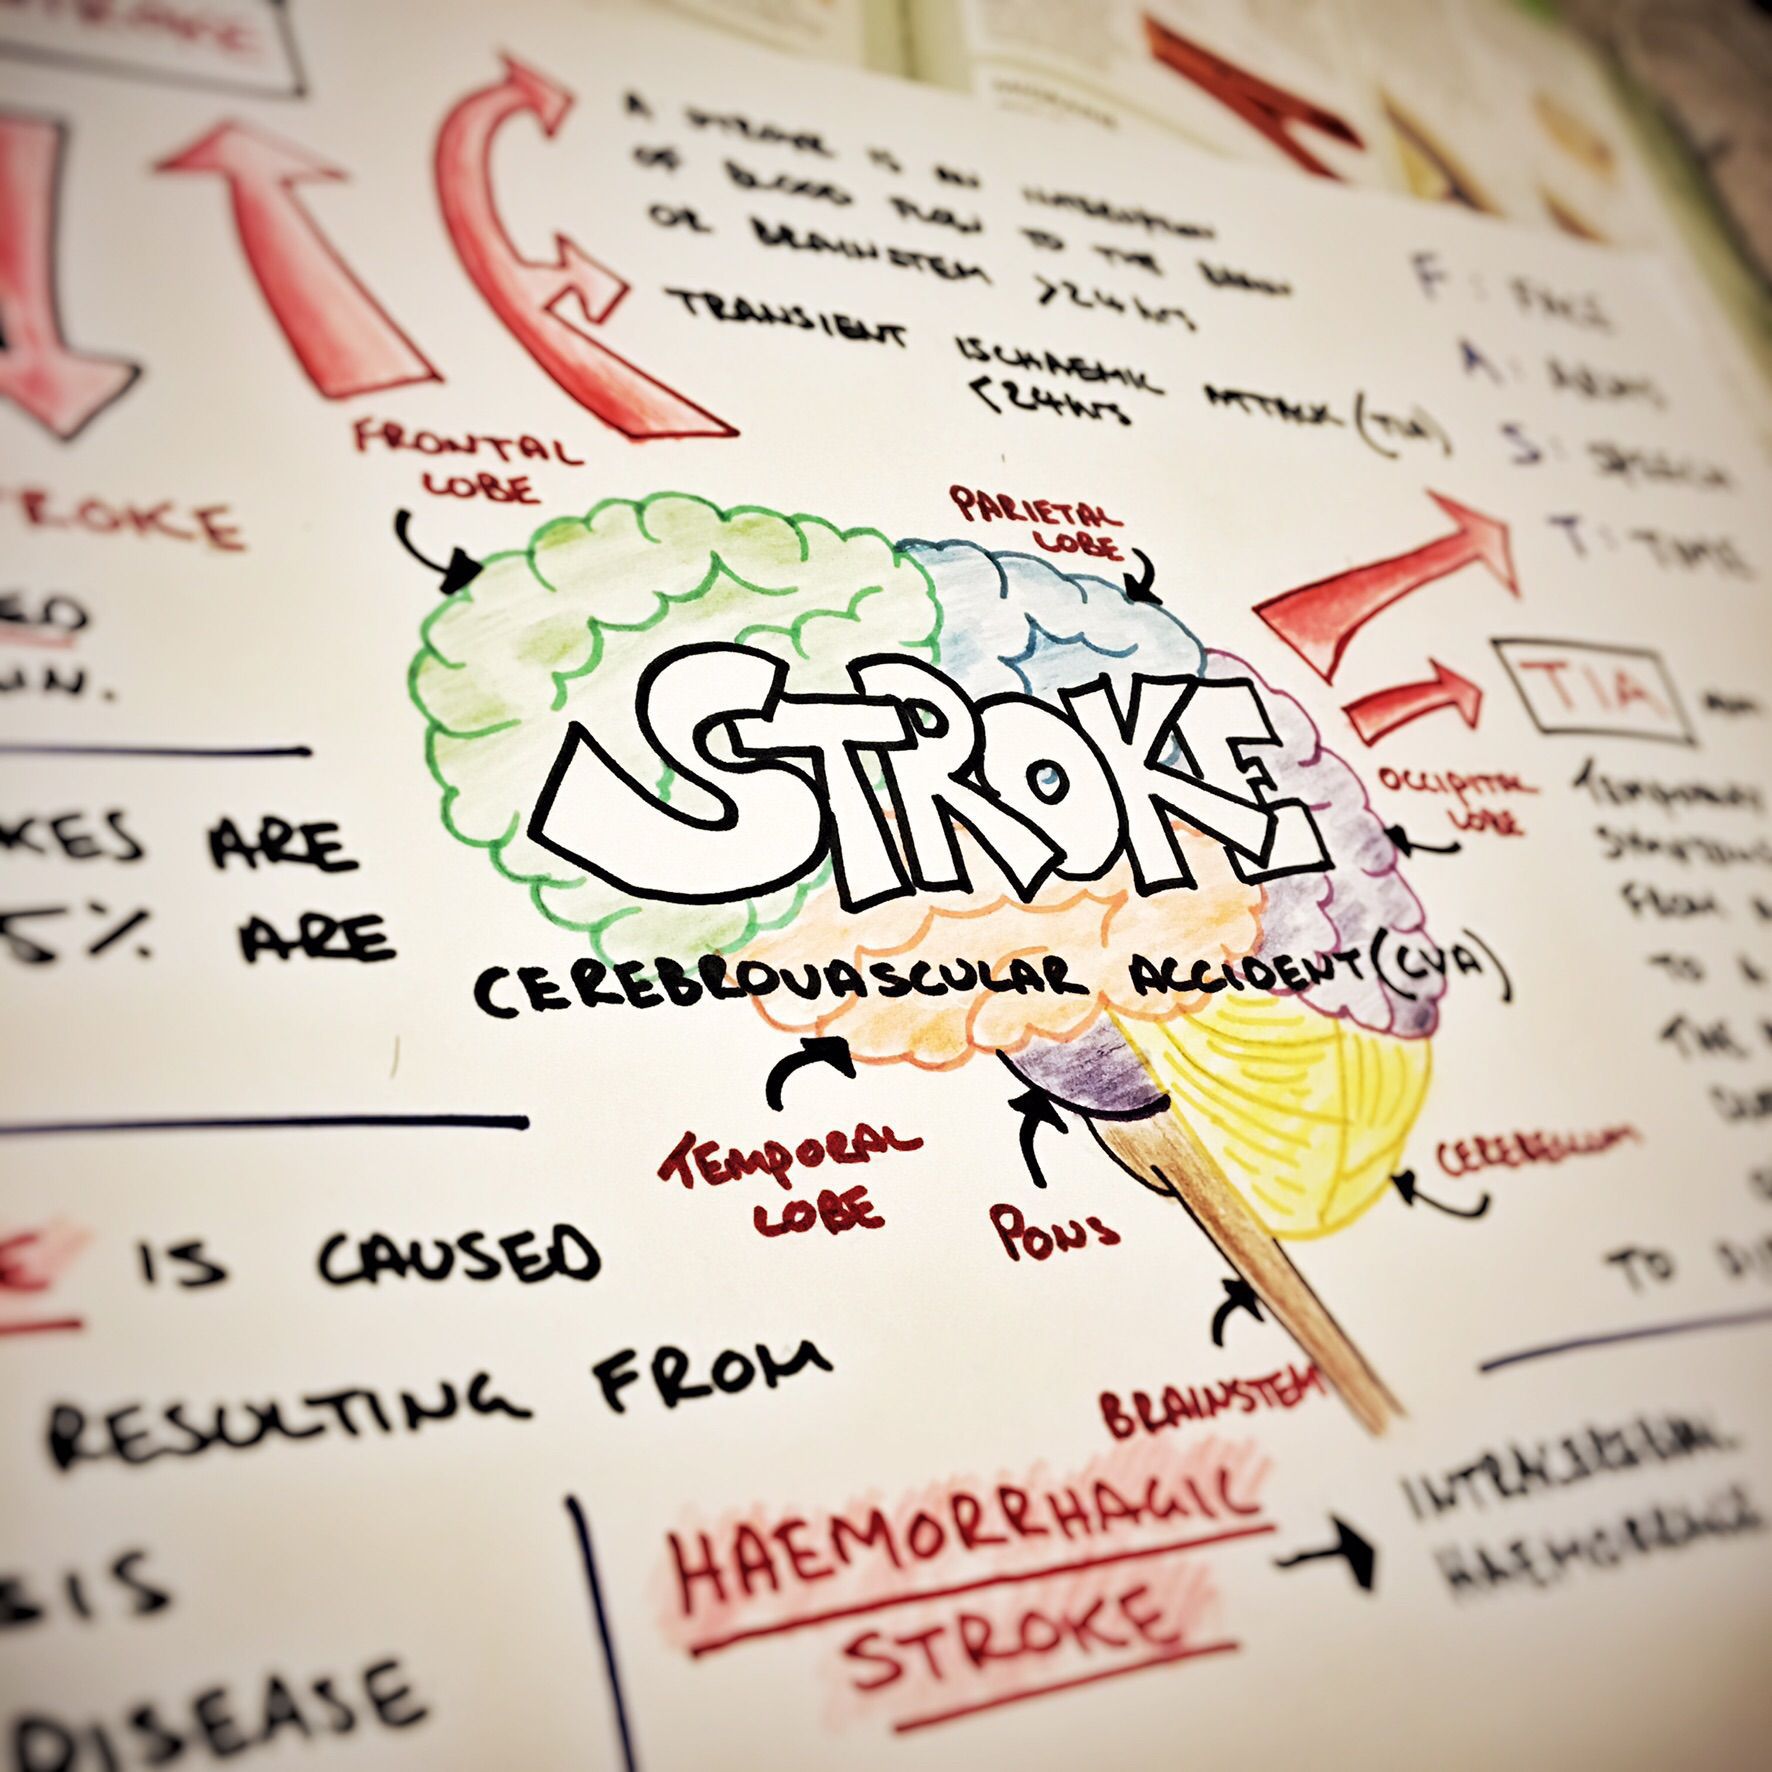 A STROKE IS AN INTERRUPTION
OF BLOOD FLOW TO THE BRAIN
OR BRAINSTEM >24hrs
TRANSIENT ISCHAEMIC ATTACK (TIA)
<24hrs
F: FACE
A: ARMS
S: SPEECH
T: TIME
FRONTAL
LOBE
PARIETAL
LOBE
TROKE
ED
UN.
STROKE
TIA
OCCIPITAL
LOBE
TEMPORARY
SYMPTOMS
FROM
TO A
THE
KES ARE
5% ARE
CEREBROVASCULAR ACCIDENT (CVA)
TEMPORAL
LOBE
PONS
CEREBELLUM
BRAINSTEM
E IS CAUSED
RESULTING FROM
TO DI
SIS
DISEASE
HAEMORRHAGIC
STROKE
INTRACEREBRAL
HAEMORRHAGE